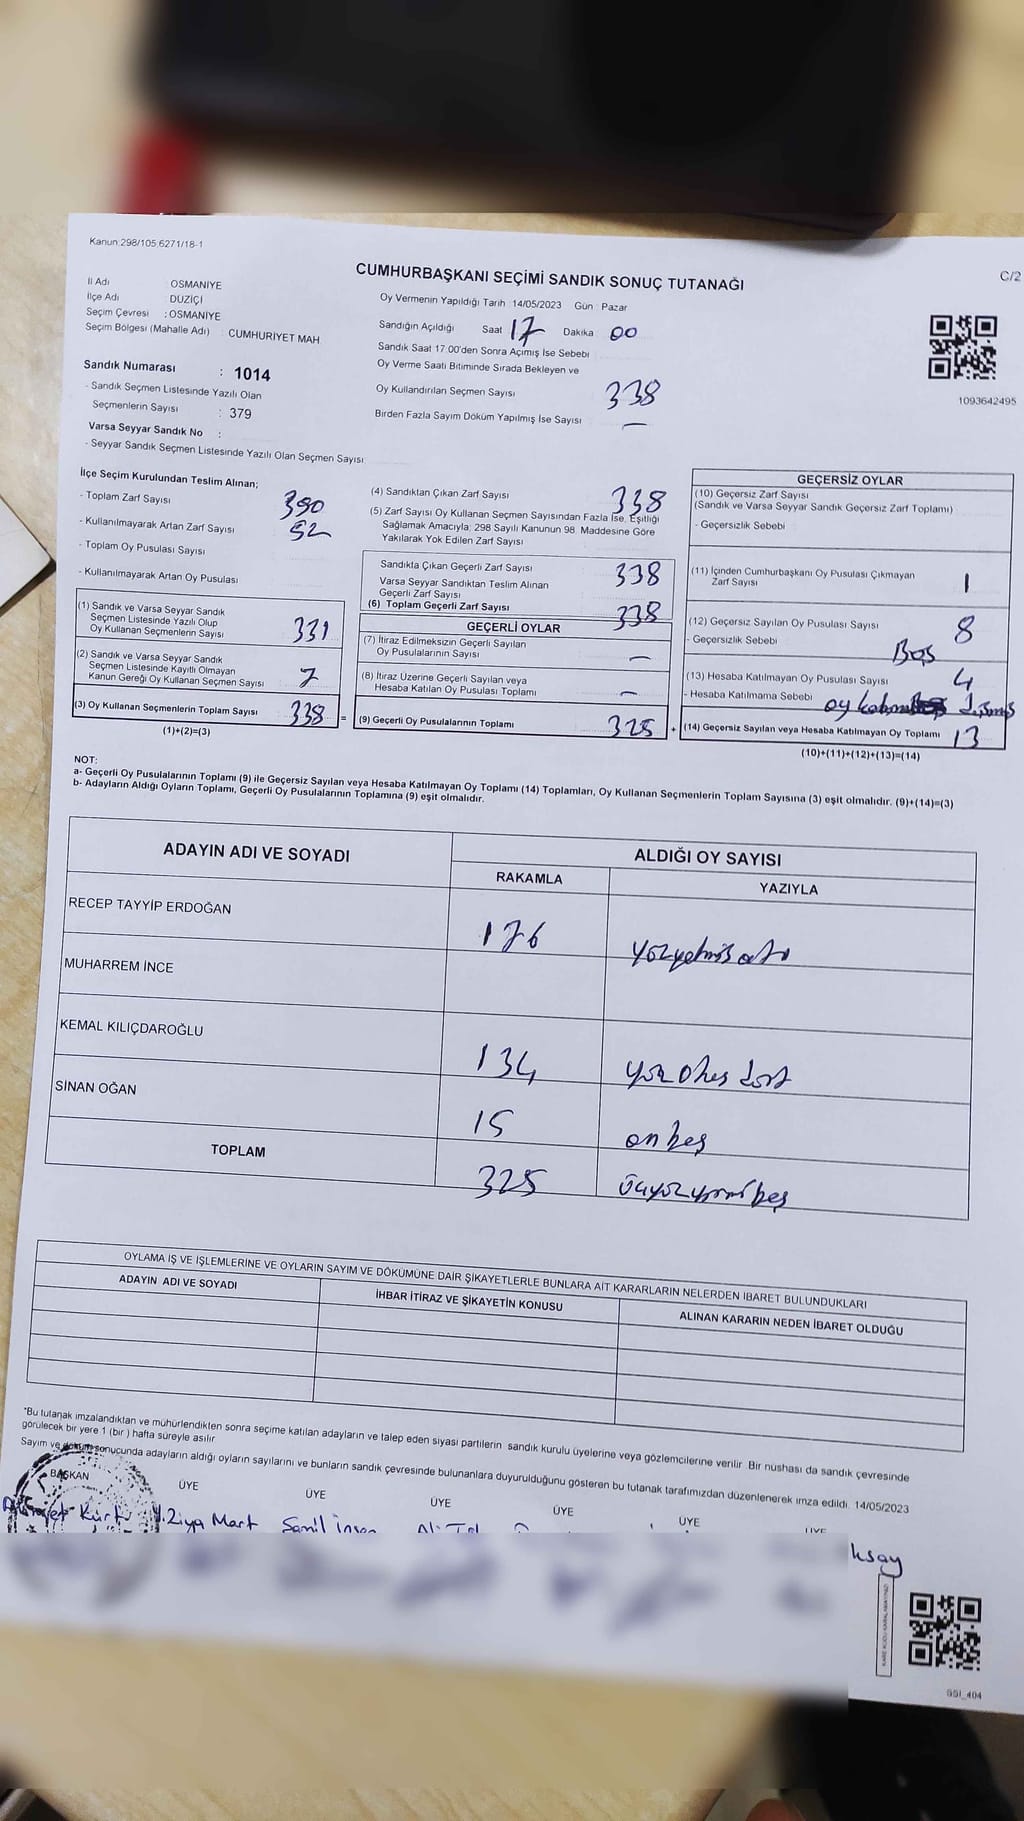 Kanun:298/105.6271/18-1
C/2
CUMHURBAŞKANI SEÇİMİ SANDIK SONUÇ TUTANAĞI
İl Adı OSMANİYE
İlçe Adı DÜZİÇİ
Seçim Çevresi :OSMANİYE
Seçim Bölgesi (Mahalle Adı) : CUMHURİYET MAH
Oy Vermenin Yapıldığı Tarih 14/05/2023 Gün : Pazar
Sandığın Açıldığı Saat 17 Dakika : 00
Sandık Saat 17.00'den Sonra Açılmış İse Sebebi
Oy Verme Saati Bitiminde Sırada Bekleyen ve
Oy Kullandırılan Seçmen Sayısı 338
Birden Fazla Sayım Döküm Yapılmış İse Sayısı —
1093642495
Sandık Numarası : 1014
- Sandık Seçmen Listesinde Yazılı Olan
Seçmenlerin Sayısı : 379
Varsa Seyyar Sandık No :
- Seyyar Sandık Seçmen Listesinde Yazılı Olan Seçmen Sayısı:
İlçe Seçim Kurulundan Teslim Alınan;
- Toplam Zarf Sayısı 390
- Kullanılmayarak Artan Zarf Sayısı 52
- Toplam Oy Pusulası Sayısı
- Kullanılmayarak Artan Oy Pusulası
(1) Sandık ve Varsa Seyyar Sandık
Seçmen Listesinde Yazılı Olup
Oy Kullanan Seçmenlerin Sayısı 331
(2) Sandık ve Varsa Seyyar Sandık
Seçmen Listesinde Kayıtlı Olmayan
Kanun Gereği Oy Kullanan Seçmen Sayısı 7
(3) Oy Kullanan Seçmenlerin Toplam Sayısı 338 =
(1)+(2)=(3)
(4) Sandıktan Çıkan Zarf Sayısı 338
(5) Zarf Sayısı Oy Kullanan Seçmen Sayısından Fazla İse, Eşitliği
Sağlamak Amacıyla; 298 Sayılı Kanunun 98. Maddesine Göre
Yakılarak Yok Edilen Zarf Sayısı
Sandıkla Çıkan Geçerli Zarf Sayısı 338
Varsa Seyyar Sandıktan Teslim Alınan
Geçerli Zarf Sayısı
(6) Toplam Geçerli Zarf Sayısı 338
GEÇERLİ OYLAR
(7) İtiraz Edilmeksizin Geçerli Sayılan
Oy Pusulalarının Sayısı —
(8) İtiraz Üzerine Geçerli Sayılan veya
Hesaba Katılan Oy Pusulası Toplamı —
(9) Geçerli Oy Pusulalarının Toplamı 325 +
GEÇERSİZ OYLAR
(10) Geçersiz Zarf Sayısı
(Sandık ve Varsa Seyyar Sandık Geçersiz Zarf Toplamı)
- Geçersizlik Sebebi
(11) İçinden Cumhurbaşkanı Oy Pusulası Çıkmayan
Zarf Sayısı 1
(12) Geçersiz Sayılan Oy Pusulası Sayısı 8
- Geçersizlik Sebebi Boş
(13) Hesaba Katılmayan Oy Pusulası Sayısı 4
- Hesaba Katılmama Sebebi oy
(14) Geçersiz Sayılan veya Hesaba Katılmayan Oy Toplamı 13
(10)+(11)+(12)+(13)=(14)
NOT:
a- Geçerli Oy Pusulalarının Toplamı (9) ile Geçersiz Sayılan veya Hesaba Katılmayan Oy Toplamı (14) Toplamları, Oy Kullanan Seçmenlerin Toplam Sayısına (3) eşit olmalıdır. (9)+(14)=(3)
b- Adayların Aldığı Oyların Toplamı, Geçerli Oy Pusulalarının Toplamına (9) eşit olmalıdır.
ADAYIN ADI VE SOYADI ALDIĞI OY SAYISI
RAKAMLA YAZIYLA
RECEP TAYYİP ERDOĞAN 176 yüzyetmiş altı
MUHARREM İNCE
KEMAL KILIÇDAROĞLU 134 yüz otuz dört
SİNAN OĞAN 15 on beş
TOPLAM 325 üçyüzyirmibeş
OYLAMA İŞ VE İŞLEMLERİNE VE OYLARIN SAYIM VE DÖKÜMÜNE DAİR ŞİKAYETLERLE BUNLARA AİT KARARLARIN NELERDEN İBARET BULUNDUKLARI
ADAYIN ADI VE SOYADI İHBAR İTİRAZ VE ŞİKAYETİN KONUSU ALINAN KARARIN NEDEN İBARET OLDUĞU
*Bu tutanak imzalandıktan ve mühürlendikten sonra seçime katılan adayların ve talep eden siyasi partilerin sandık kurulu üyelerine veya gözlemcilerine verilir. Bir nüshası da sandık çevresinde
görülecek bir yere 1 (bir) hafta süreyle asılır.
Sayım ve döküm sonucunda adayların aldığı oyların sayılarını ve bunların sandık çevresinde bulunanlara duyurulduğunu gösteren bu tutanak tarafımızdan düzenlenerek imza edildi. 14/05/2023
BAŞKAN ÜYE ÜYE ÜYE ÜYE ÜYE ÜYE
Kurt Ziya Mart
ksay
GSI_404